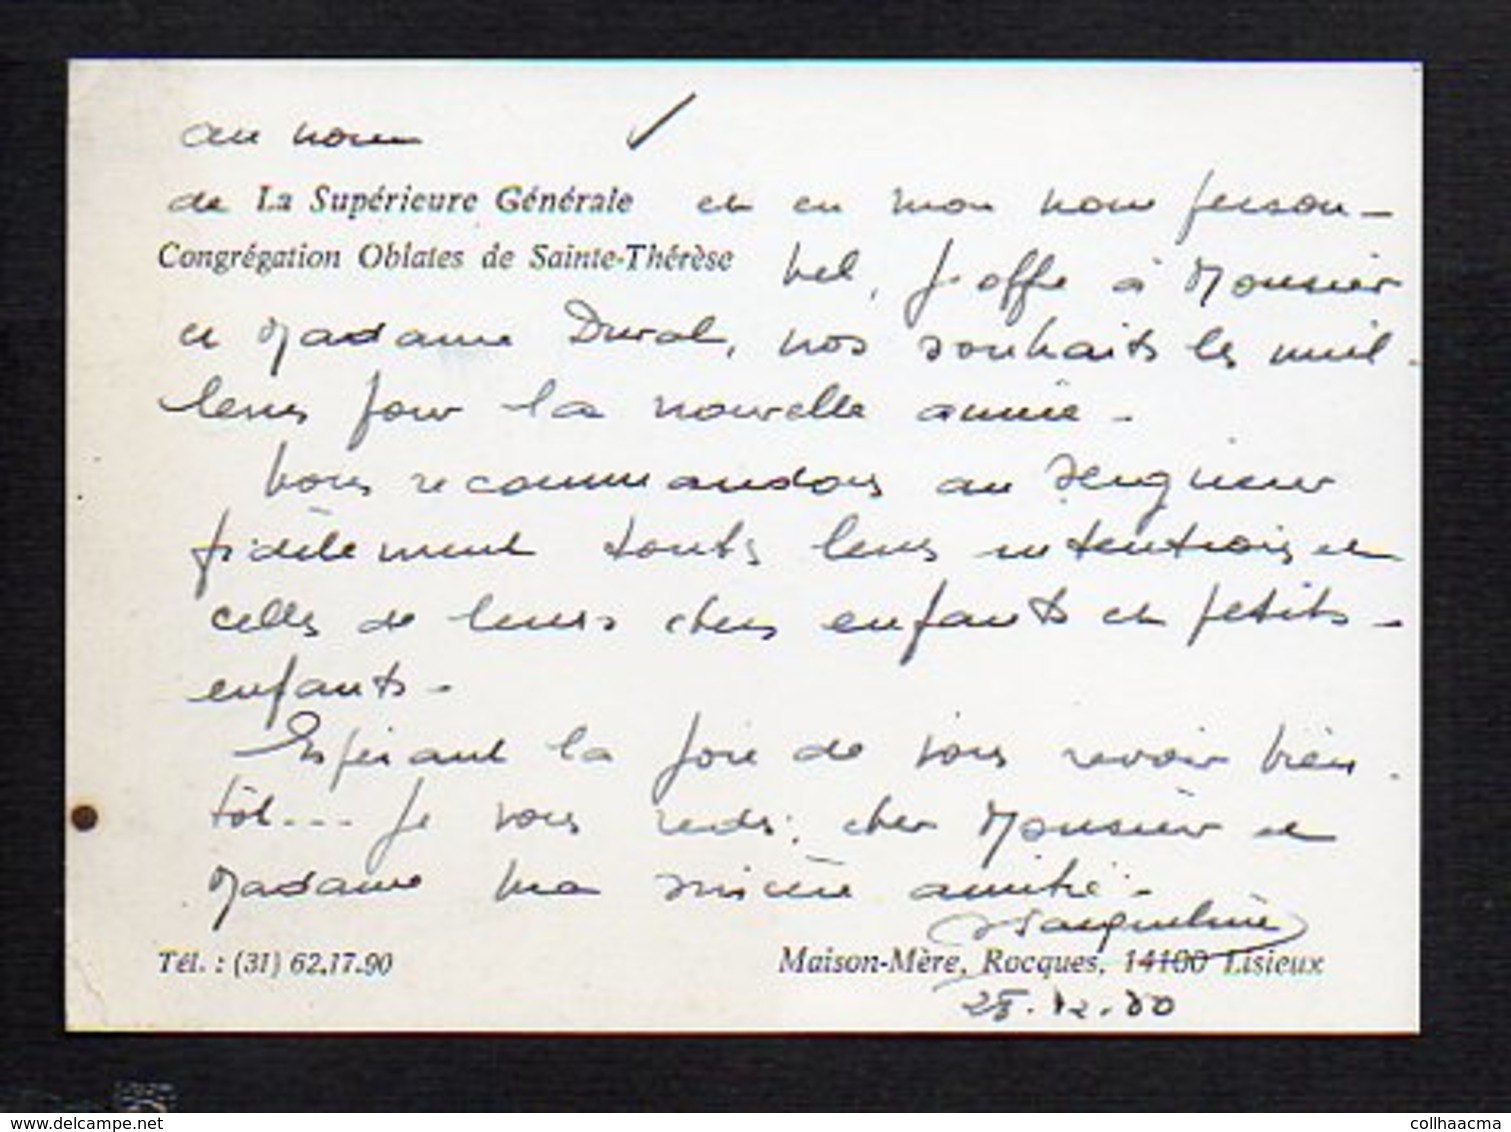 au nom
de La Supérieure Générale et en mon nom person-
Congrégation Oblates de Sainte-Thérèse nel, j'offre à Monsieur
et Madame Duval, nos souhaits les meil-
leurs pour la nouvelle année -
Nous recommandons au Seigneur
fidèlement toutes leurs intentions et
celles de leurs chers enfants et petits-
enfants -
Espérant la joie de vous revoir bien
tôt... Je vous redis, cher Monsieur et
Madame ma sincère amitié -
Jacqueline
Tél. : (31) 62.17.90 Maison-Mère, Rocques, 14100 Lisieux
28.12.80
www.delcampe.net
collhaacma